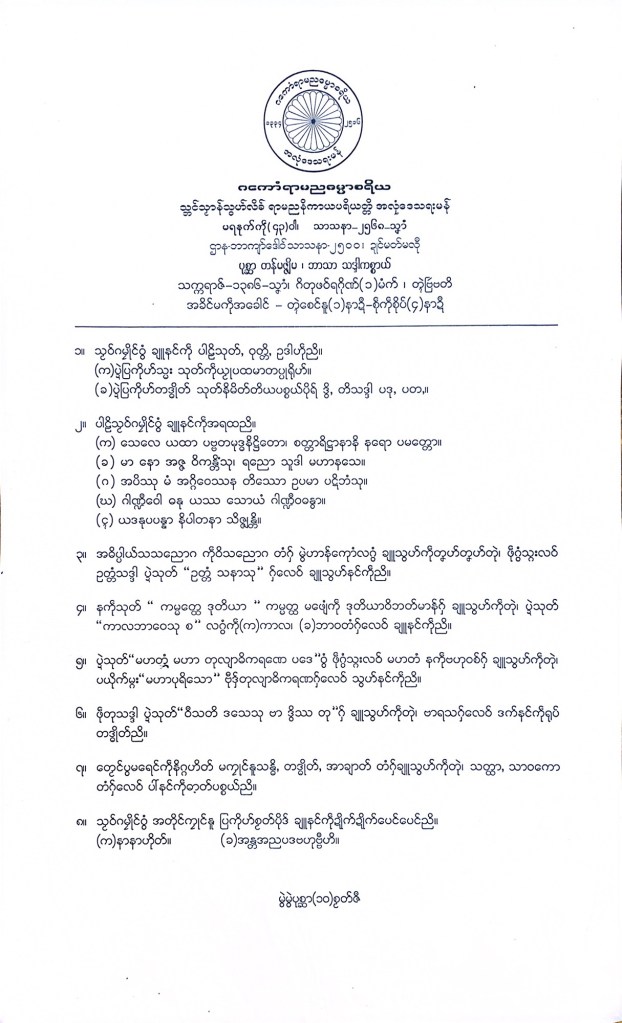 ဂကောံရာမညဓမ္မာစရိယ
၁၃၃၄ ၂၅၁၆
အလုံဒေသရးမန်
ဂကောံရာမညဓမ္မာစရိယ
သ္ဘင်သွာန်သွဟ်လိခ် ရာမညနိကာယပရိယတ္တိ အလုံဒေသရးမန်
မရနက်ကဵု(၄၃)ဝါ၊ သာသနာ–၂၅၆၈–သၞာံ
ဌာန–ဘာကျာ်ဒေါင်သာသနာ–၂၅၀၀၊ ဍုင်မတ်မလီု
ပုစ္ဆာ တန်မဇ္ဈိမ၊ ဘာသာ သဒ္ဒါကစ္စာယ်
သက္ကရာဇ်–၁၃၈၆–သၞာံ၊ ဂိတုဖဝ်ရဂိုဏ်(၁)မံက်၊ တ္ၚဲဗြဴဗတိ
အခိၚ်မကဵုအခေါၚ် – တ္ၚဲစေၚ်နူ(၁)နာဍဳ–စဵုကဵုစိုပ်(၄)နာဍဳ
၁။ သၠဝ်ဂမၠိုၚ်ဝွံ ချူနၚ်ကဵု ပါဠိသုတ်, ဝုတ္တိ, ဥဒါဟိုညိ။
(က)ပ္ဍဲပြကိုဟ်သ္ပး သုတ်ကဵုယၟုပထမာတပ္ပုရိုဟ်။
(ခ)ပ္ဍဲပြကိုဟ်တဒ္ဓိုတ် သုတ်နိမိတ်တိယပစ္စယ်ပိုရ် ဒွိ, တိသဒ္ဒါ ပဒု, ပတ,။
၂။ ပါဠိသၠဝ်ဂမၠိုၚ်ဝွံ ချူနၚ်ကဵုအရထညိ။
(က) သေလေ ယထာ ပဗ္ဗတမုဒ္ဓနိဋ္ဌိတော၊ စတ္တာရိဋ္ဌာနာနိ နရော ပမတ္တော။
(ခ) မာ နော အဇ္ဇ ဝိကန္တိံသု၊ ရညော သူဒါ မဟာနသေ။
(ဂ) အပိဿု မံ အဂ္ဂိဝေဿန တိဿော ဥပမာ ပဋိဘံသု။
(ဃ) ဂါဏ္ဍီဝေါ ဓနု ယဿ သောယံ ဂါဏ္ဍီဝဓန္ဝာ။
(ၚ) ယဒနုပပန္နာ နိပါတနာ သိဇ္ဈန္တိ။
၃။ အဓိပ္ပါယ်သသညောဂ ကဵုဝိသညောဂ တံဂှ် မွဲဟာန်ကၠောံလဂွံ ချူသွဟ်ကဵုတှဟ်တှဟ်တုဲ၊ ဖဵုဂွံသ္ဂးလဝ်
ဥတ္တံသဒ္ဒါ ပ္ဍဲသုတ် “ဥတ္တံ သနာသု” ဂှ်လေဝ် ချူသွဟ်နၚ်ကဵုညိ။
၄။ နကဵုသုတ် “ ကမ္မတ္ထေ ဒုတိယာ ” ကမ္မတ္ထ မဖျေံကဵု ဒုတိယာဝိဘတ်မာန်ဂှ် ချူသွဟ်ကဵုတုဲ၊ ပ္ဍဲသုတ်
“ကာလဘာဝေသု စ” လဂွံကဵု(က)ကာလ၊ (ခ)ဘာဝတံဂှ်လေဝ် ချူနၚ်ကဵုညိ။
၅။ ပ္ဍဲသုတ်“မဟတံ့ မဟာ တုလျာဓိကရဏေ ပဒေ”ဝွံ ဖဵုဂွံသ္ဂးလဝ် မဟတံ နကဵုဗဟုဝစ်ဂှ် ချူသွဟ်ကဵုတုဲ၊
ပယိုက်မ္ဂး“မဟာပုရိသော” ဗီုဒှ်တုလျာဓိကရဏ်ဂှ်လေဝ် သွဟ်နၚ်ကဵုညိ။
၆။ ဖဵုတုသဒ္ဒါ ပ္ဍဲသုတ်“ဝီသတိ ဒသေသု ဗာ ဒွိဿ တု”ဂှ် ချူသွဟ်ကဵုတုဲ၊ ဗာရသဂှ်လေဝ် ဒက်နၚ်ကဵုရုပ်
တဒ္ဓိုတ်ညိ။
၇။ တၟေၚ်ပွမရေၚ်ကဵုနိဂ္ဂဟိတ် မကၠုၚ်နူသန္ဓိ, တဒ္ဓိုတ်, အာချာတ် တံဂှ်ချူသွဟ်ကဵုတုဲ၊ သတ္ထာ, သာဝကော
တံဂှ်လေဝ် ပါ်နၚ်ကဵုဓာတ်ပစ္စယ်ညိ။
၈။ သၠဝ်ဂမၠိုၚ်ဝွံ အတိုၚ်ကၠုၚ်နူ ပြကိုဟ်စၟတ်ပိုဒ် ချူနၚ်ကဵုဍိုက်ဍိုက်ပေၚ်ပေၚ်ညိ။
(က)နာနာဟိုတ်။ (ခ)အန္တအညပဒဗဟုဗ္ဗီဟိ။
မွဲမွဲပုစ္ဆာ(၁၀)စၟတ်ဇီ